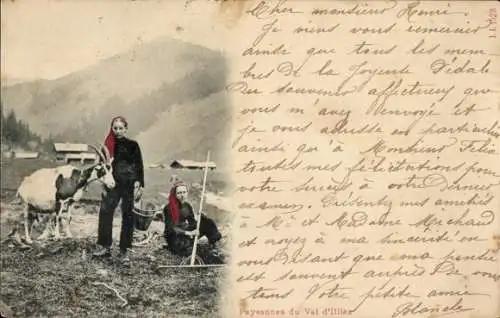 Cher monsieur Henri.
Je viens vous remercier
ainsi que tous les mem
bres de la Joyeuse Pédale
du souvenir affectueux que
vous m'avez envoyé et
je vous adresse en particulier
ainsi qu'à Monsieur Félix
toutes mes félicitations pour
votre succès à votre Dernier
examen. Présentez mes amitiés
à Mr et Madame Michaud
et croyez à ma sincérité en
vous disant que ma pensée
est souvent auprès de vous
tous Votre petite amie
Blanche
Paysannes du Val d'Illiez